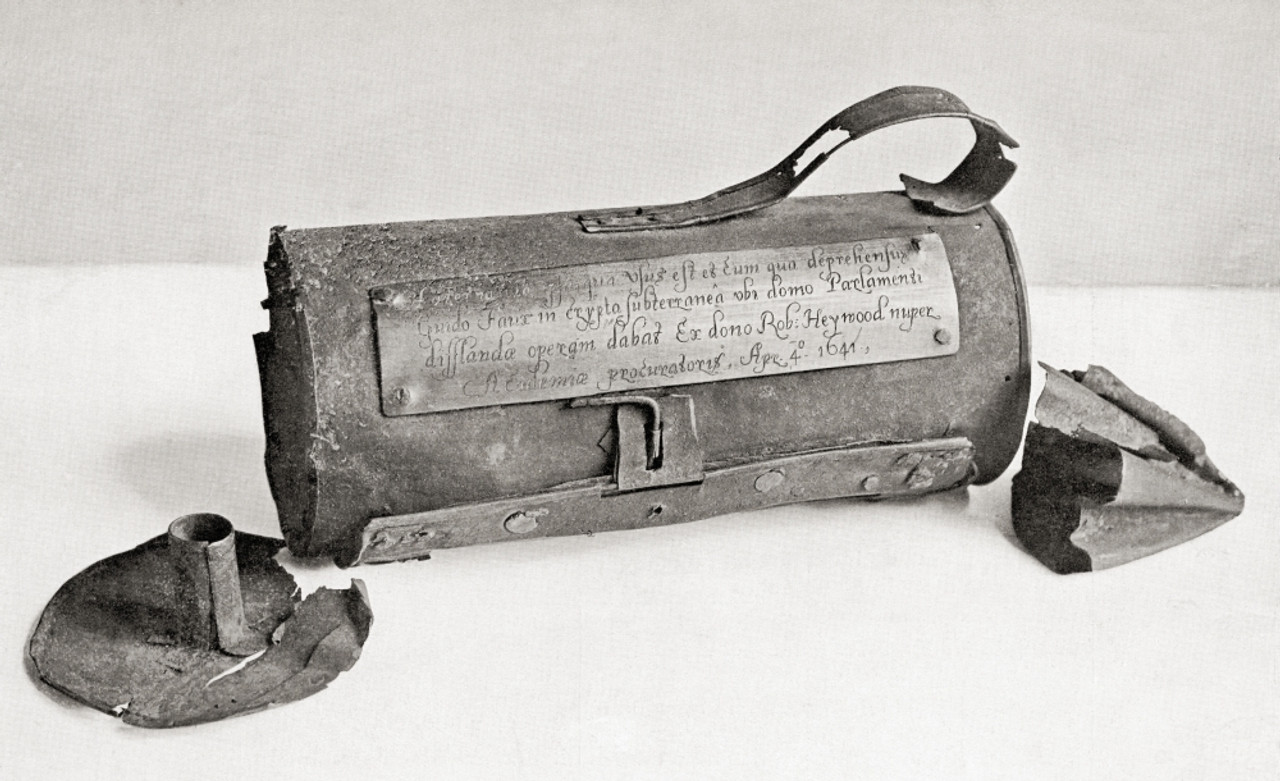 usus est et cum qua deprehensus
Guido Faux in crypta subterranea ubi domo Parlamenti
difflandæ operam dabat Ex dono Rob: Heywood nuper
Academiæ procuratoris, Apr. 4º. 1641.